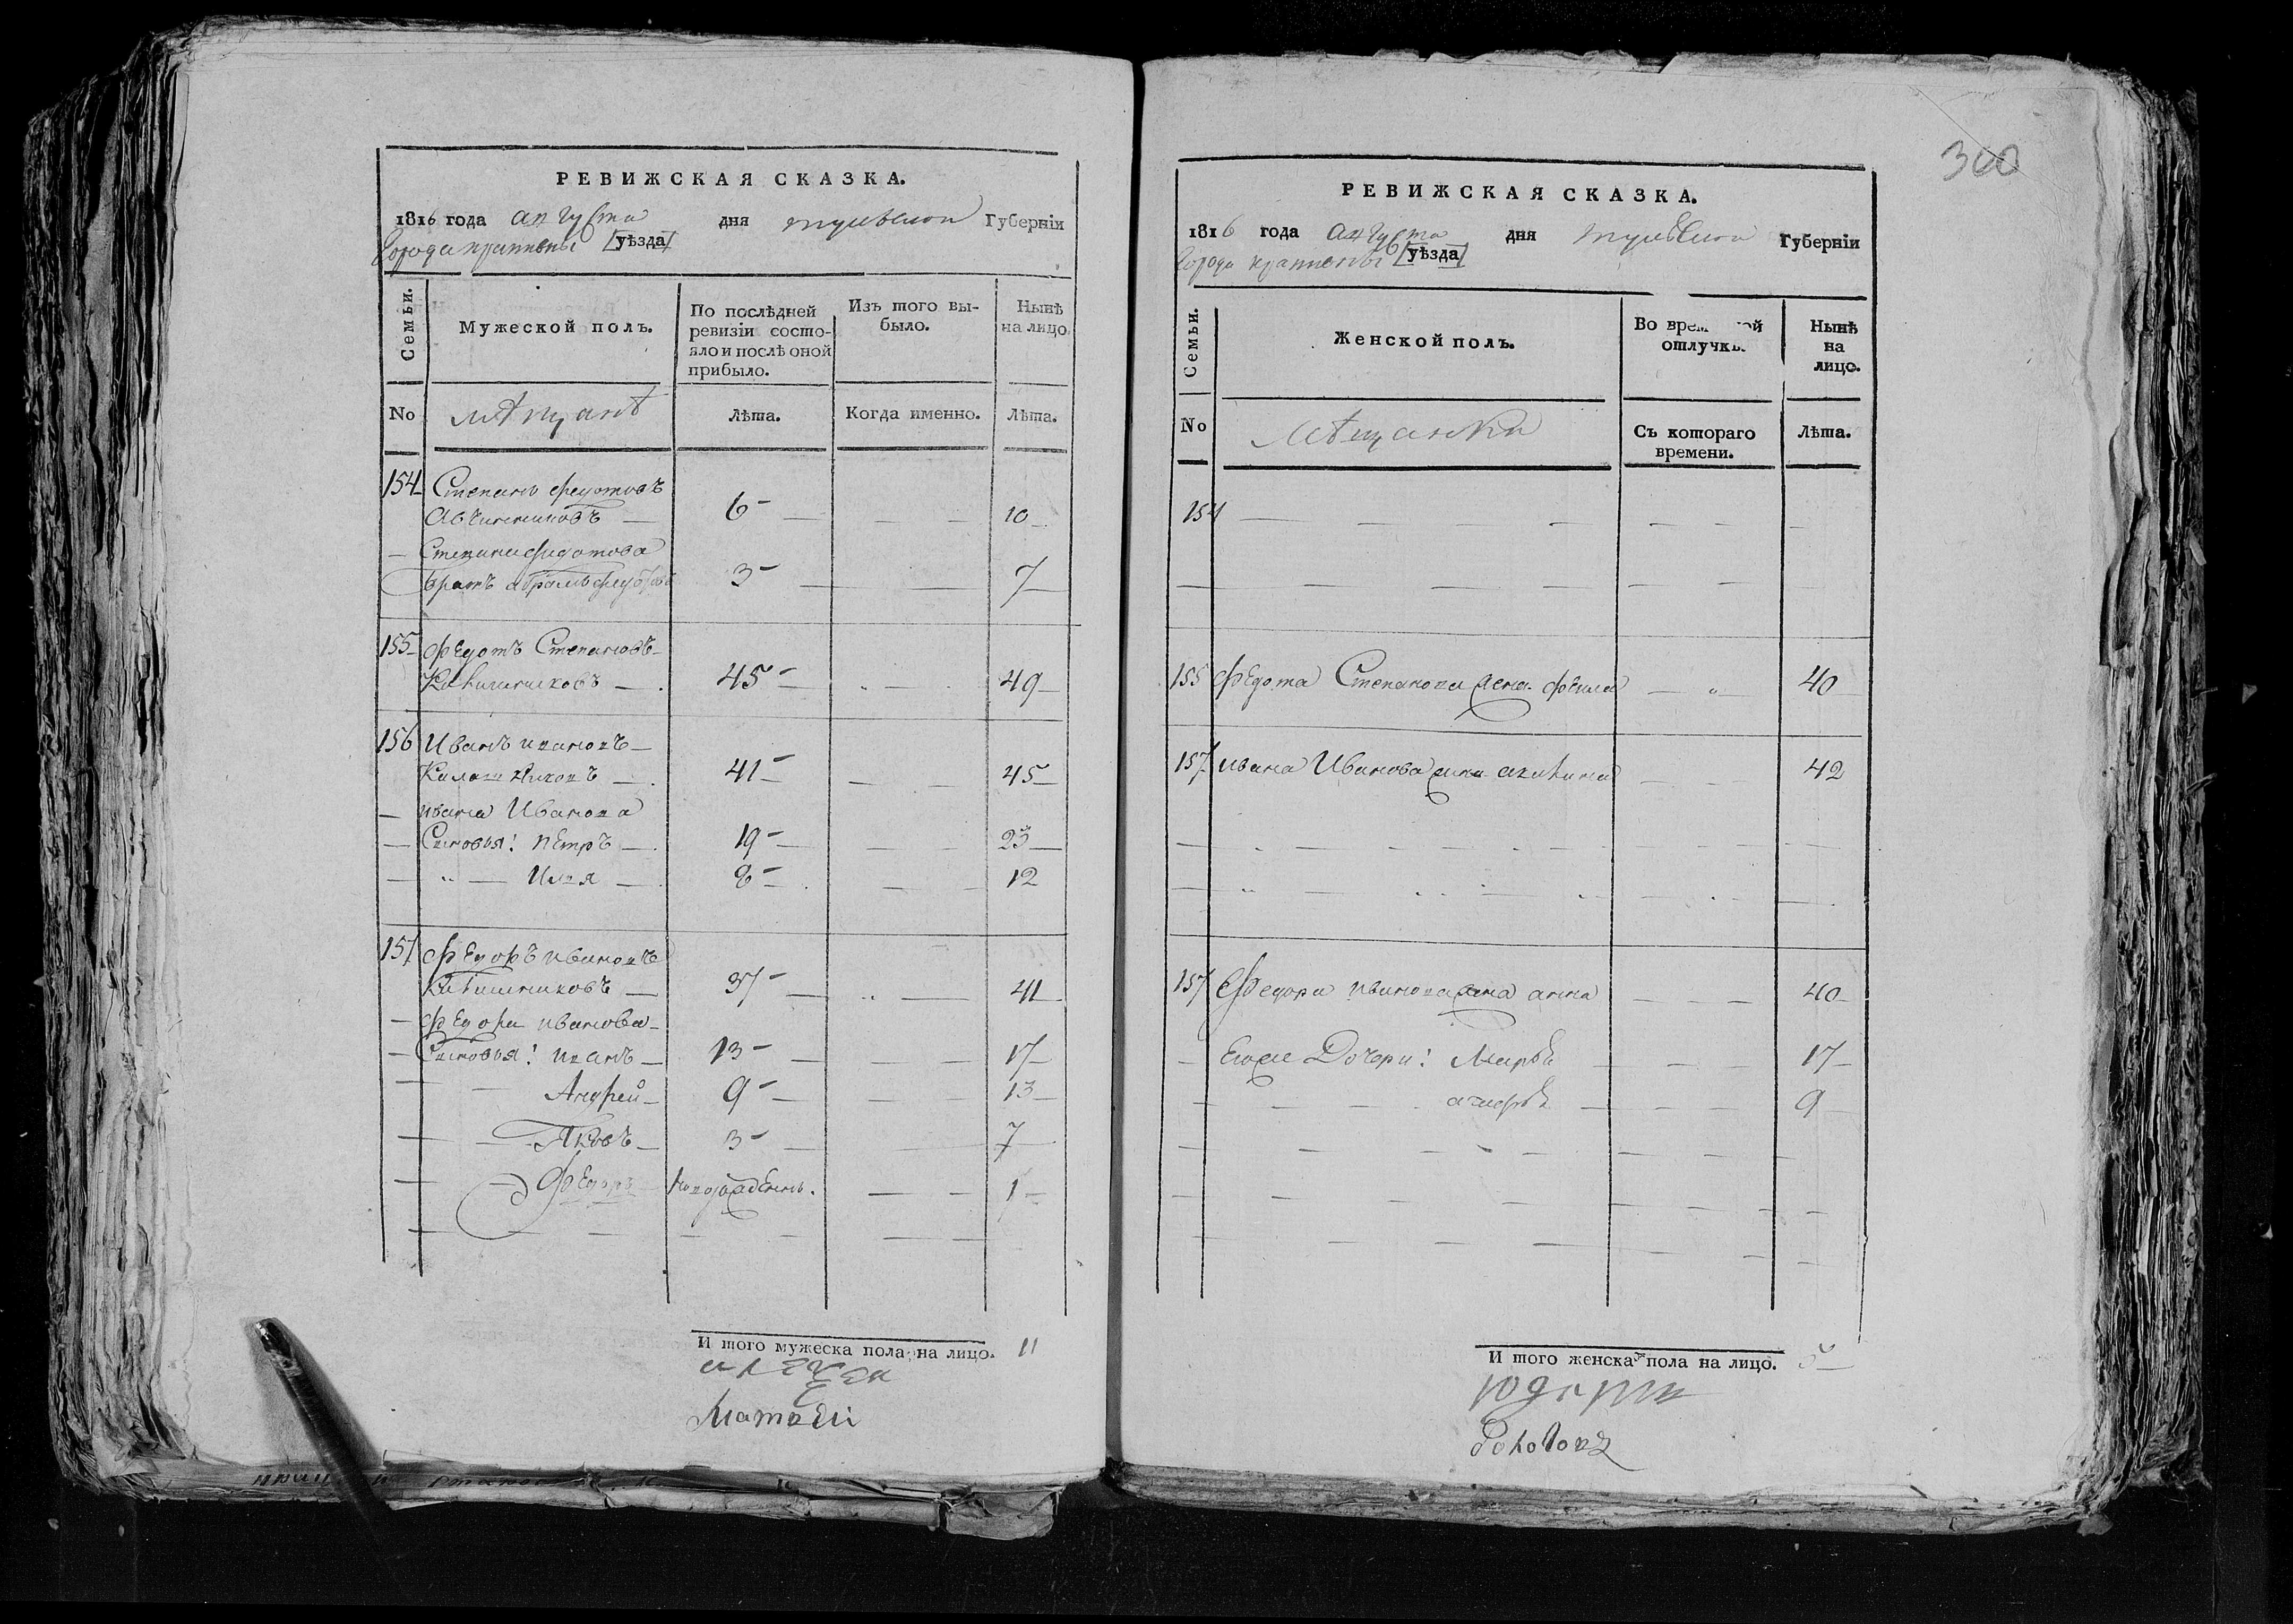 РЕВИЖСКАЯ СКАЗКА.
1816 года августа дня тульской Губерніи
Города крапивны [уѣзда]
Семьи.
Мужеской полъ.
По послѣдней ревизіи состо-
яло и послѣ оной
прибыло.
Изъ того вы-
было.
Нынѣ
на лицо
No мѣщанѣ Лѣта. Когда именно. Лѣта.
154 Степанъ федотовъ
Авчинниковъ — 6 — — 10 —
— Степана федотова
братъ абрамъ федотовъ 3 — — 7
155 федотъ Степановъ
45 — — 49
156 Иванъ ивановъ —
Калашниковъ — 41 — — 45
— ивана Иванова
— Сыновья: петръ — 19 — — 23
— „ — Илья — 8 — — 12
157 федоръ ивановъ
37 — — 41
— федора иванова —
— Сыновья: иванъ — 13 — — 17
— — Андрей — 9 — 13
— — Яковъ — 3 — — 7
— — федоръ новорожденъ. — — 1 —
И того мужеска пола на лицо. 11
Матвей
300
РЕВИЖСКАЯ СКАЗКА.
1816 года августа дня тульской Губерніи
Города крапивны [уѣзда]
Семьи.
Женской полъ.
Во вре ой
отлучкѣ.
Нынѣ
на
лицо.
No мѣщанки Съ котораго
времени. Лѣта.
154 — — — — — —
155 федота Степанова жена — „ — 40
157 ивана Иванова жена акилина — — 42
157 Федора иванова жена анна — — — 40
— Егоже Дочери: Марья — — — 17
— — — — — — — 9
И того женска пола на лицо. 5